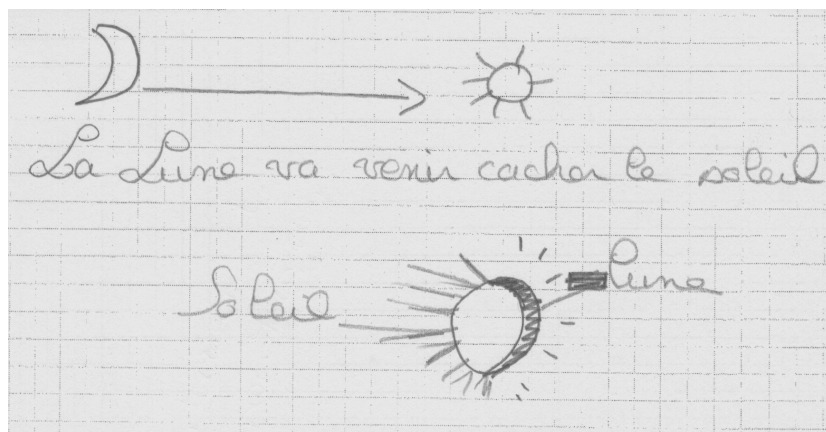 La Lune va venir cacher le soleil
Soleil
Lune